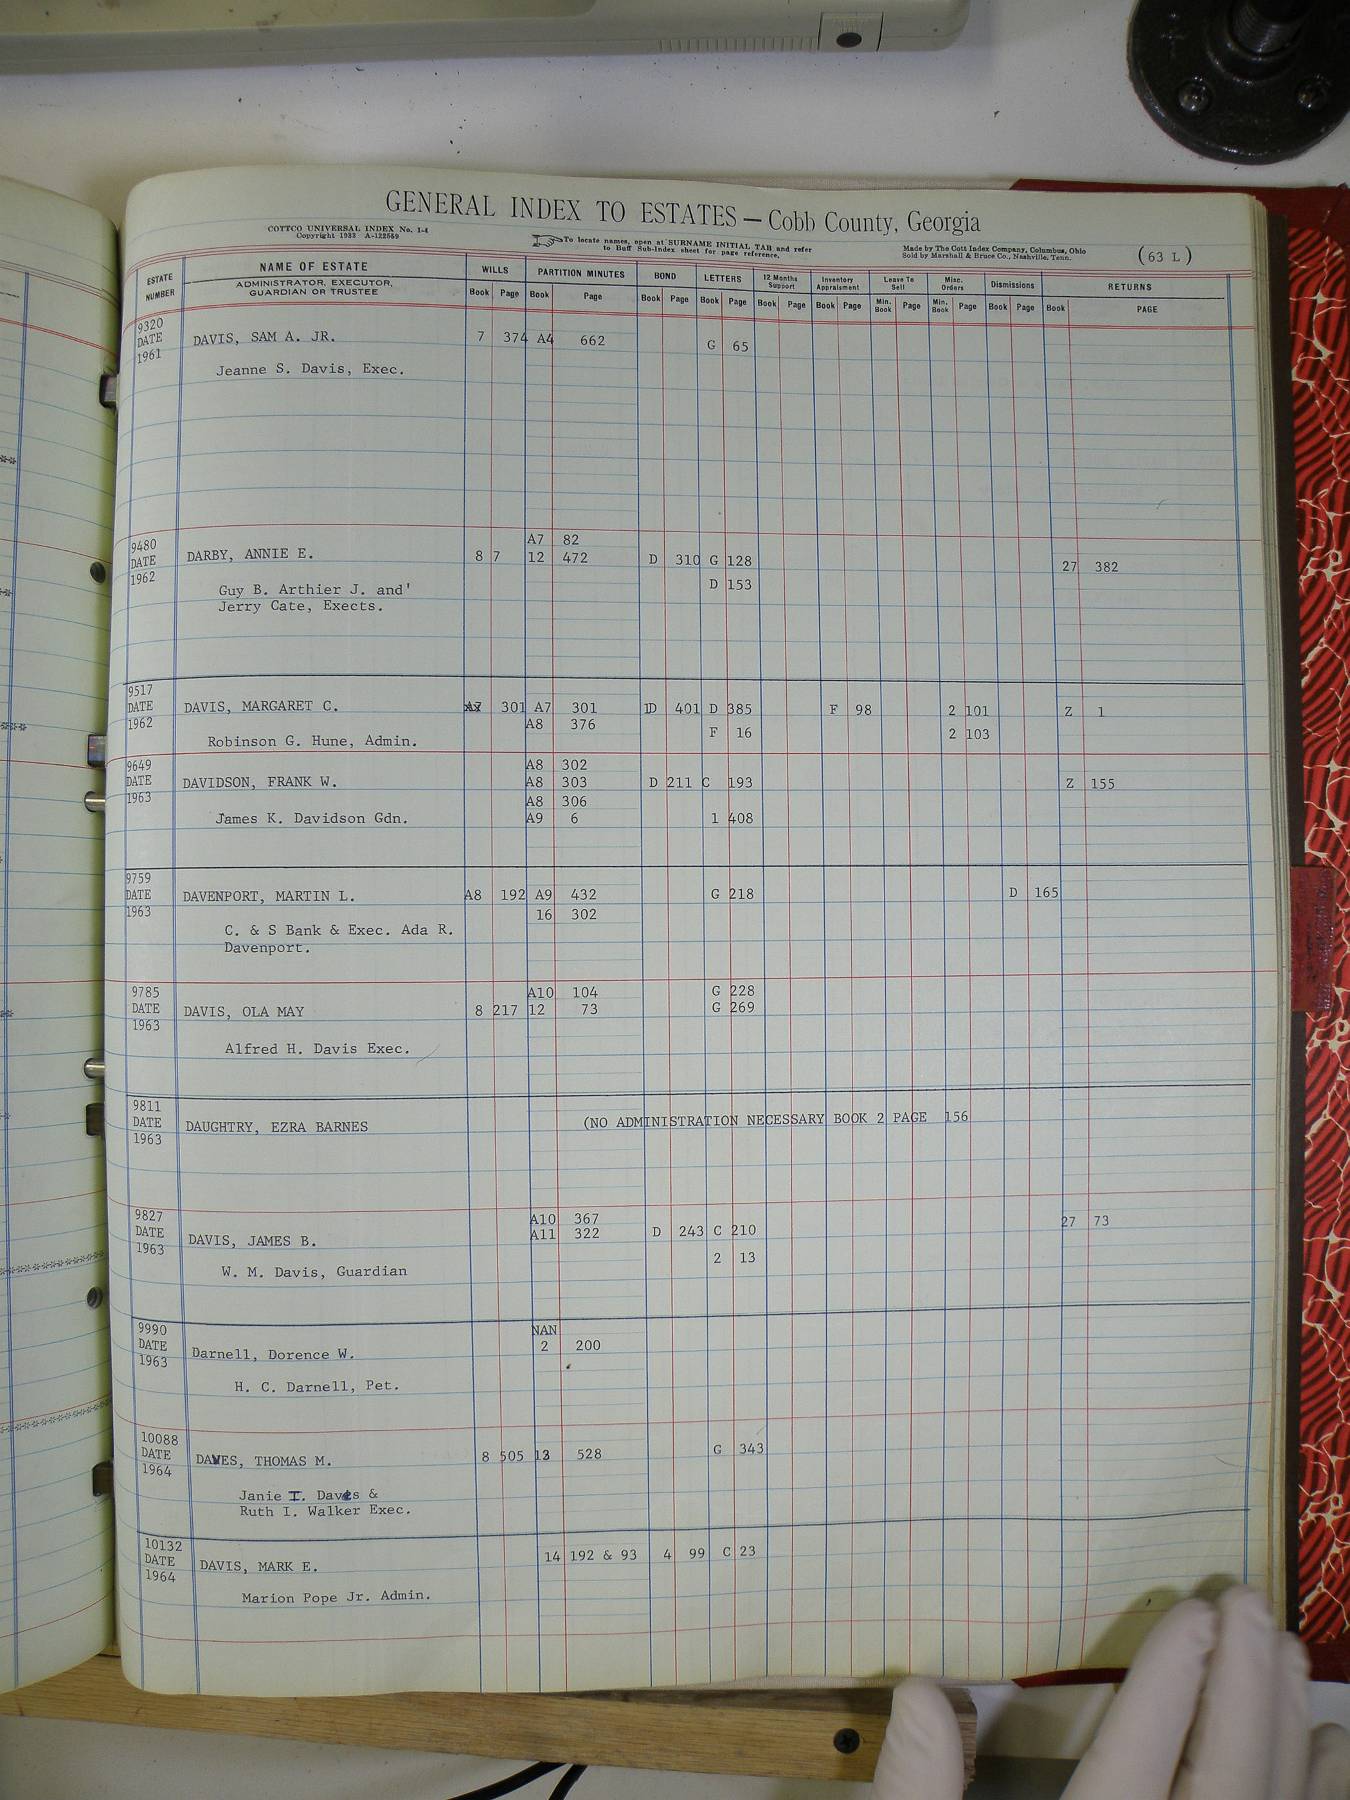 GENERAL INDEX TO ESTATES — Cobb County, Georgia
COTTCO UNIVERSAL INDEX No. 1-4
Copyright 1933 A-122559
To locate names, open at SURNAME INITIAL TAB and refer
to Buff Sub-Index sheet for page reference.
Made by The Cott Index Company, Columbus, Ohio
Sold by Marshall & Bruce Co., Nashville, Tenn.
(63 L)
ESTATE NUMBER
NAME OF ESTATE
ADMINISTRATOR, EXECUTOR, GUARDIAN OR TRUSTEE
WILLS PARTITION MINUTES BOND LETTERS 12 Months Support Inventory Appraisment Leave To Sell Misc. Orders Dismissions RETURNS
Book Page Book Page Book Page Book Page Book Page Book Page Min. Book Page Min. Book Page Book Page Book PAGE
9320
DATE DAVIS, SAM A. JR. 7 374 A4 662 G 65
1961
Jeanne S. Davis, Exec.
9480 A7 82
DATE DARBY, ANNIE E. 8 7 12 472 D 310 G 128 27 382
1962 D 153
Guy B. Arthier J. and'
Jerry Cate, Exects.
9517
DATE DAVIS, MARGARET C. 301 A7 301 D 401 D 385 F 98 2 101 Z 1
1962 A8 376 F 16 2 103
Robinson G. Hune, Admin.
9649 A8 302
DATE DAVIDSON, FRANK W. A8 303 D 211 C 193 Z 155
1963 A8 306
James K. Davidson Gdn. A9 6 1 408
9759
DATE DAVENPORT, MARTIN L. A8 192 A9 432 G 218 D 165
1963 16 302
C. & S Bank & Exec. Ada R.
Davenport.
9785 A10 104 G 228
DATE DAVIS, OLA MAY 8 217 12 73 G 269
1963
Alfred H. Davis Exec.
9811
DATE DAUGHTRY, EZRA BARNES (NO ADMINISTRATION NECESSARY BOOK 2 PAGE 156
1963
9827 A10 367 27 73
DATE DAVIS, JAMES B. A11 322 D 243 C 210
1963 2 13
W. M. Davis, Guardian
9990 NAN
DATE Darnell, Dorence W. 2 200
1963
H. C. Darnell, Pet.
10088
DATE DAWES, THOMAS M. 8 505 13 528 G 343
1964
Janie I. Dawes &
Ruth I. Walker Exec.
10132
DATE DAVIS, MARK E. 14 192 & 93 4 99 C 23
1964
Marion Pope Jr. Admin.